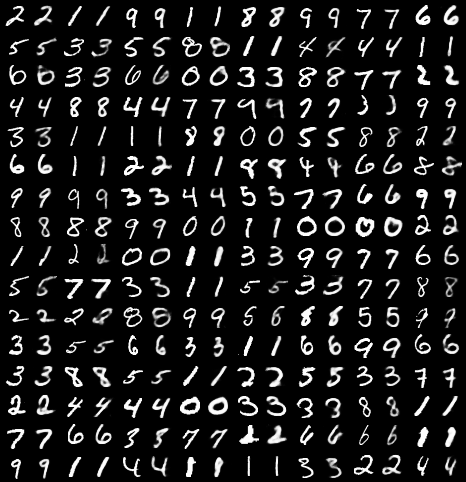 2 2 1 1 9 9 1 1 8 8 9 9 7 7 6 6
5 5 3 3 5 5 8 8 1 1 4 4 4 4 1 1
6 6 3 3 6 6 0 0 3 3 8 8 7 7 2 2
4 4 8 8 4 4 7 7 9 9 7 7 3 3 9 9
3 3 1 1 1 1 8 8 0 0 5 5 8 8 2 2
6 6 1 1 2 2 1 1 8 8 4 4 6 6 8 8
9 9 9 9 3 3 4 4 5 5 7 7 6 6 9 9
8 8 8 8 9 9 0 0 1 1 0 0 0 0 2 2
1 1 2 2 0 0 1 1 3 3 9 9 7 7 6 6
5 5 7 7 3 3 1 1 5 5 3 3 7 7 8 8
2 2 2 2 8 8 9 9 5 6 8 8 5 5 9 9
3 3 5 5 6 6 3 3 1 1 6 6 9 9 6 6
3 3 8 8 5 5 1 1 2 2 5 5 3 3 7 7
2 2 4 4 4 4 0 0 3 3 3 3 8 8 1 1
7 7 6 6 3 3 7 7 2 2 6 6 6 6 1 1
9 9 1 1 4 4 1 1 1 1 3 3 2 2 4 4